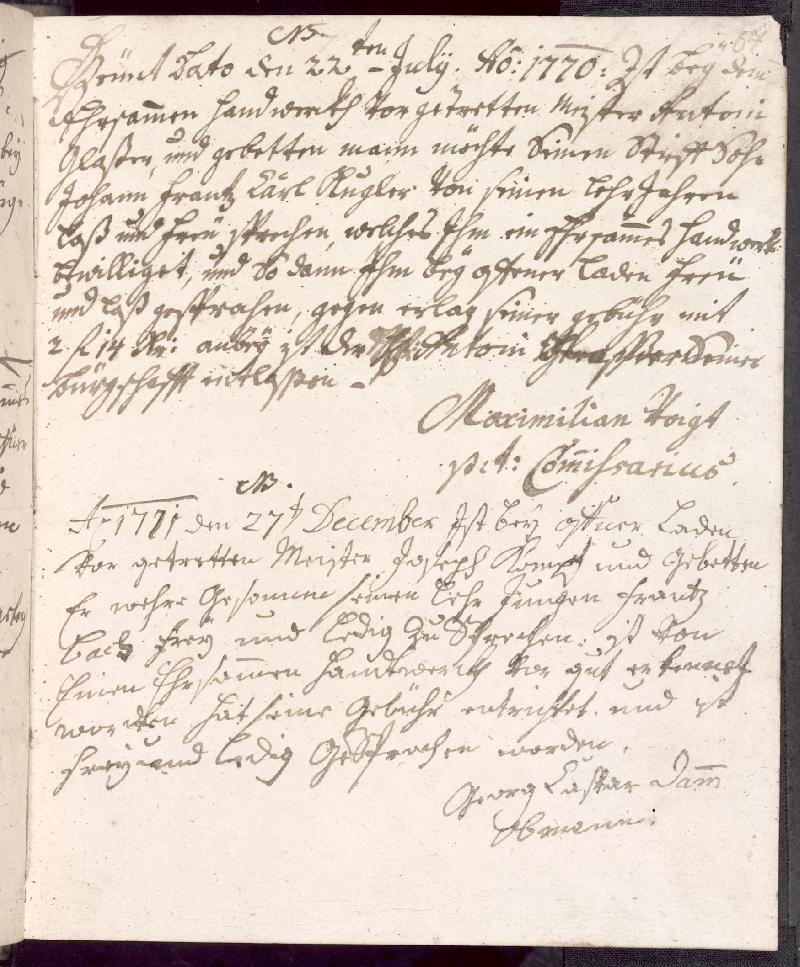 NB
Heünt Dato den 22ten July. Ao: 1770: Ist beÿ dem
Ehrsamen Handwerckh Vor getretten Meister Antoni
Glasser, und gebetten mann möchte Seinen Stieff Sohn
Johann Frantz Carl Kugler Von seinen Lehr Jahren
loß und freÿ sprechen, welches Ihm ein Ehrsammes Handwerk
bewilliget, und So dann Ihm beÿ offener laden freÿ
und loß gesprohen, gegen erlag seiner gebühr mit
2 fl 14 Kr: anbeÿ ist der Antoni Seiner
bürgschafft entlassen –
Maximilian Voigt
p:t: Commissarius.
NB.
Ao 1771 den 27t December Ist beÿ offner Laden
Vor getretten Meister Joseph und Gebetten
Er wehre Gesonnen seinen Lehr Jungen Frantz
freÿ und Ledig Zu Sprechen. ist Von
Einen Ehrsammen Handtwerckh Vor gut erkennet
worden hat seine Gebühr entrichtet. und ist
freÿ und Ledig GeSprochen worden.
Georg Caspar Damm
Obmann.